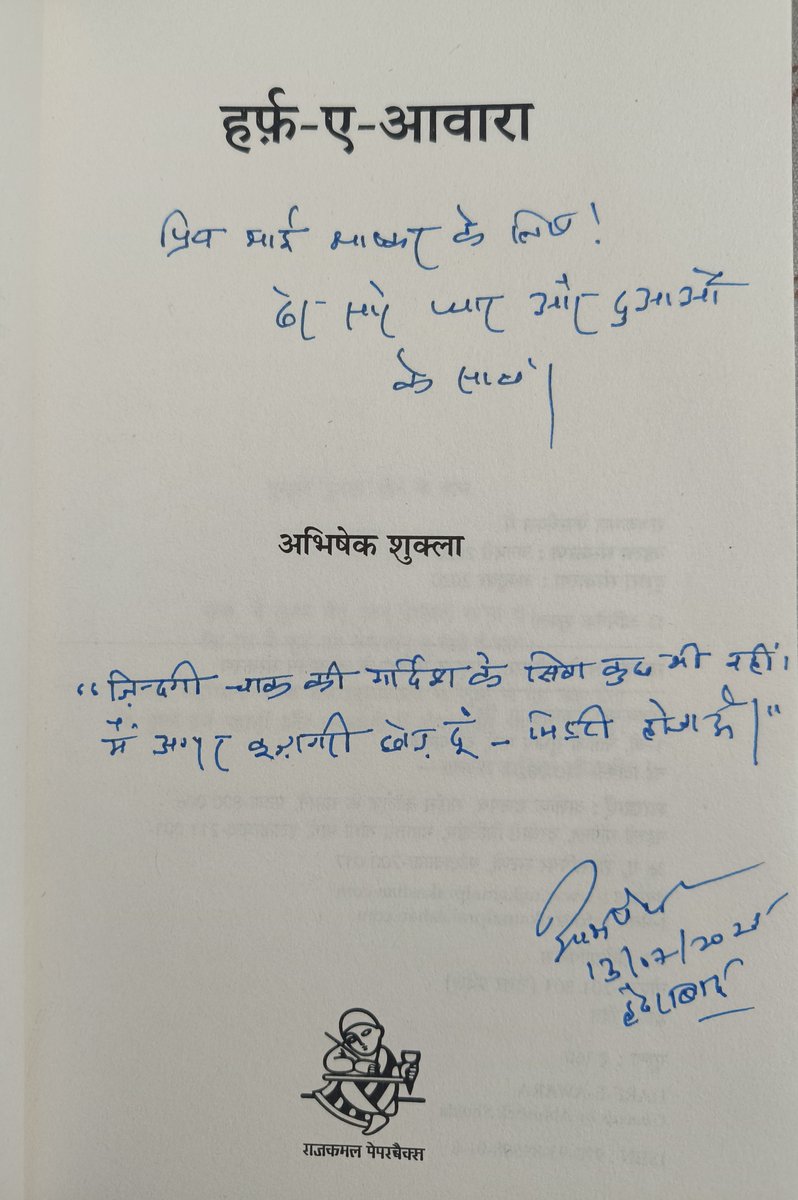 हर्फ़-ए-आवारा
प्रिय भाई भास्कर के लिए!
ढेर सारे प्यार और दुआओं
के साथ।
अभिषेक शुक्ला
"ज़िन्दगी चाक की गर्दिश के सिवा कुछ भी नहीं।
मैं अगर कूज़ागरी छोड़ दूँ - मिट्टी हो जाऊँ।"
अभिषेक
13/07/2025
हैदराबाद
राजकमल पेपरबैक्स